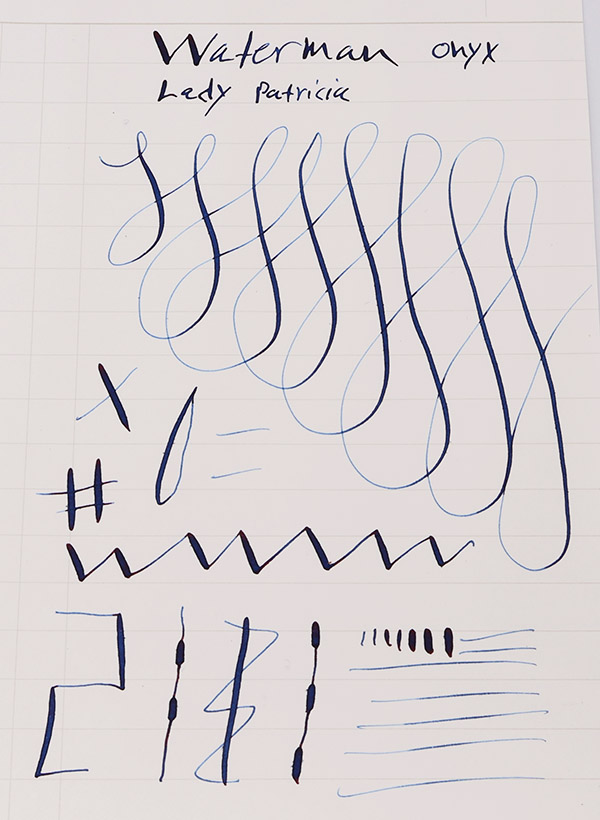 Waterman onyx
Lady Patricia